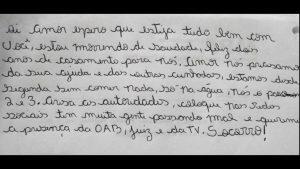 Oi Amor espero que esteja tudo bem com
você, estou morrendo de saudade, feliz dois
anos de casamento para nós. Amor nós precisamos
da sua ajuda e das outras cunhadas, estamos desde
segunda sem comer nada, só na água, nós o
2 e 3. Avisa as autoridades, coloque nas redes
sociais tem muita gente passando mal e queremos
a presença da OAB, juiz e da TV. Socorro!